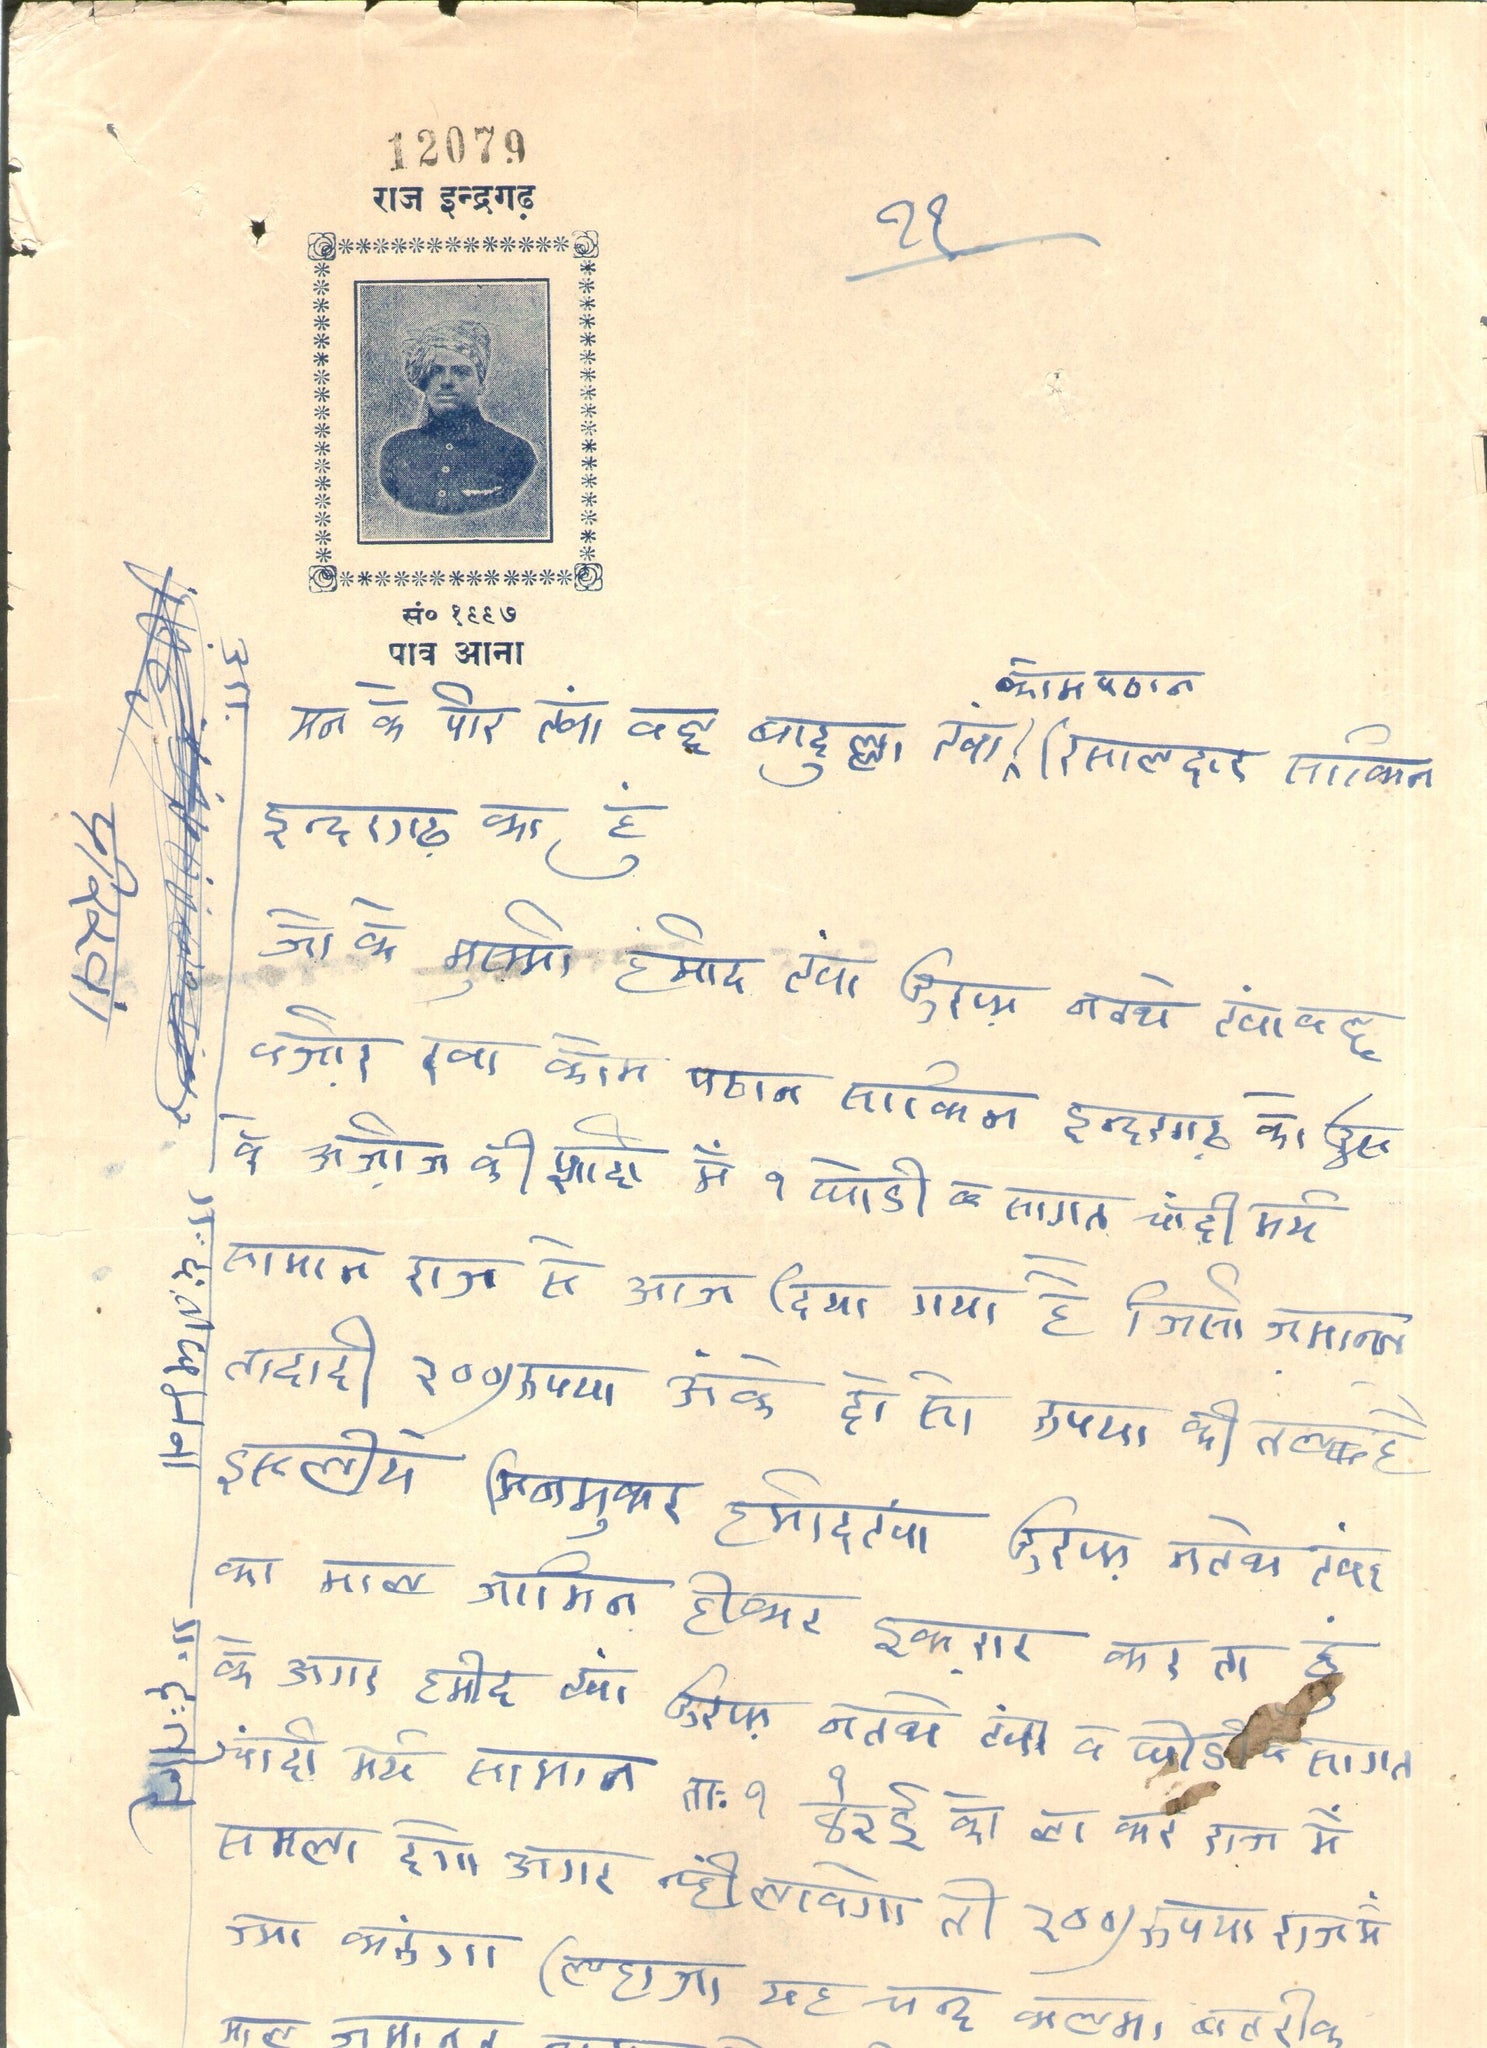 12079
राज इन्द्रगढ़
११
सं० १९९७
पाव आना
कोम पठान
मन के पीर खां वल्द बादुल्ला खां रिसालदार साकिन
इन्दरगढ़ का हुं
जो के मुसमी हमीद खां उरफ़ नत्थे खां वल्द
वजीर खां कोम पठान साकिन इन्दरगढ़ को उस
के अजीज की शादी में १ घोडी व सागत चांदी मये
सामान राज से आज दिया गया है जिसी जमानत
तादादी २००) रुपया अंके दो सो रुपया की तलब है
इसलीये मिनमुकर हमीद खां उरफ़ नतेथ खां
का माल जामिन होकर इकरार करता हुं
के अगर हमीद खां उरफ़ नतथे खां व घोडी व सागत
चांदी मये सामान ता: १ को ला कर राज में
समला देगा अगर नहीं लावेगा तो २००) रुपया राज में
जमा करुंगा लिहाजा यह चन्द कलमा बतरीक
माल जमानत
पीरखां